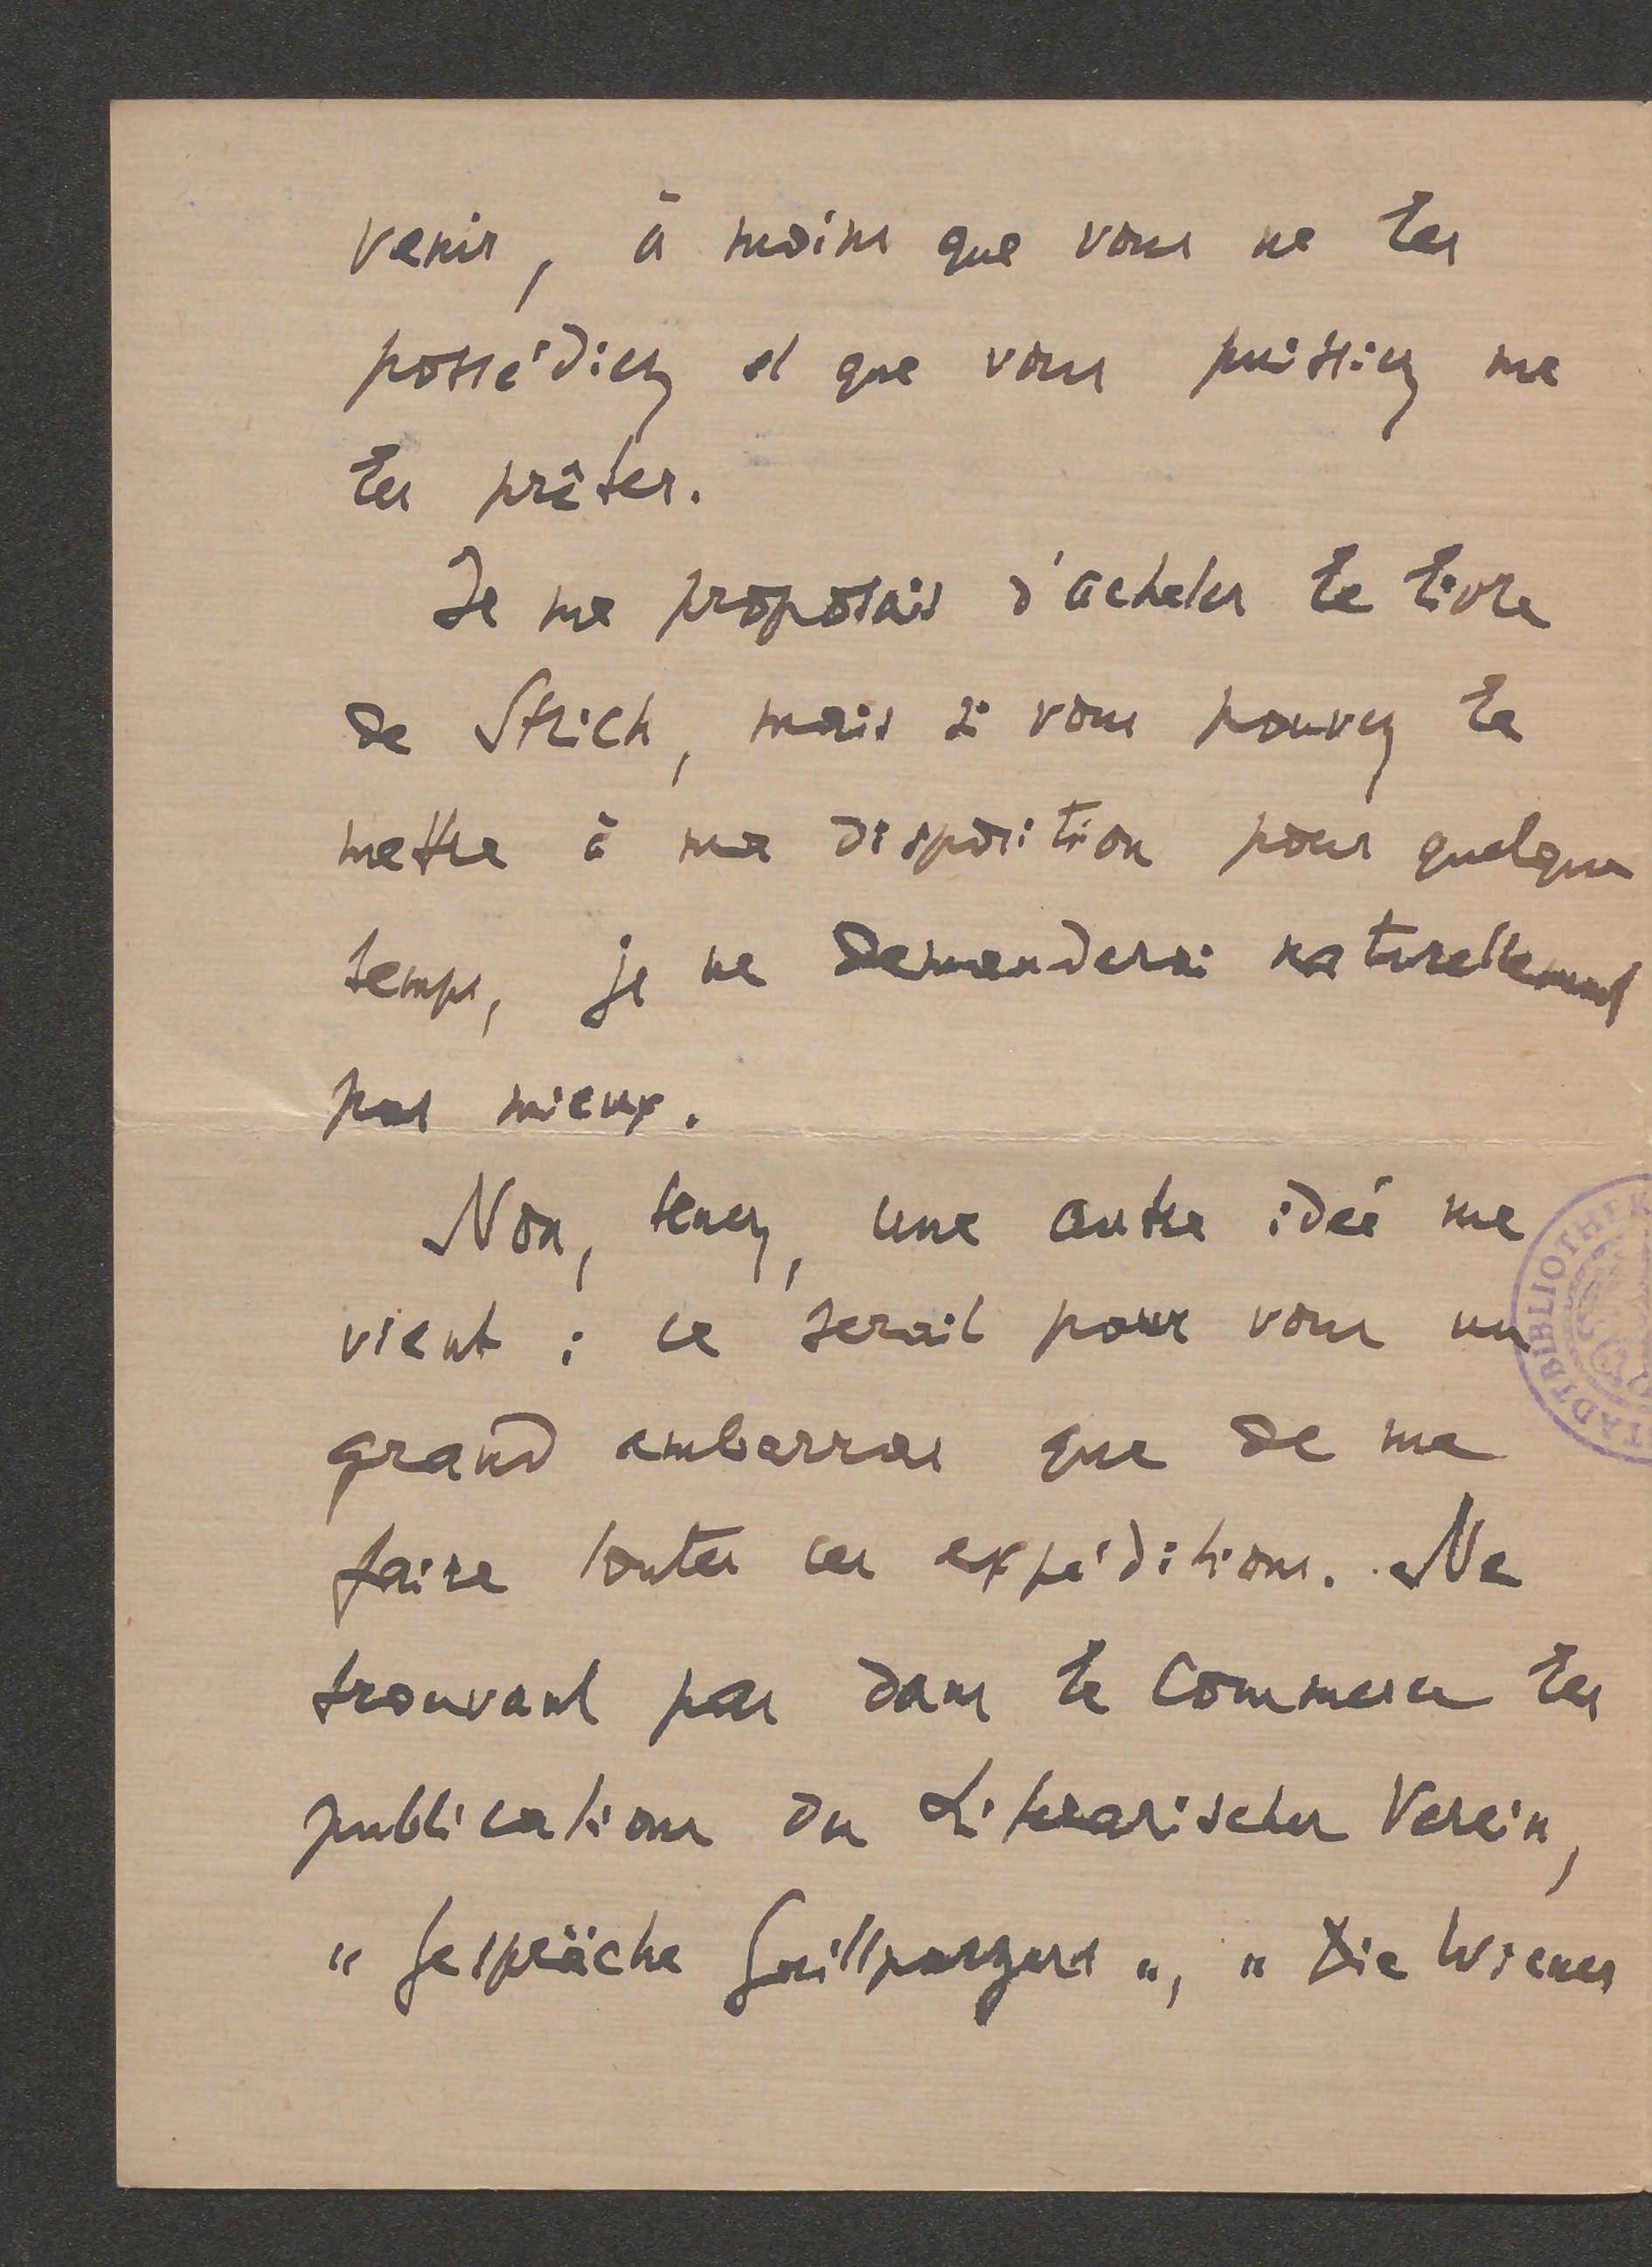 venir, à moins que vous ne les
possédiez et que vous puissiez me
les prêter.
Je me proposais d'acheter le livre
de Strich, mais si vous pouvez le
mettre à ma disposition pour quelque
temps, je ne demanderai naturellement
pas mieux.
Non, tenez, une autre idée me
vient : ce serait pour vous un
grand embarras que de me
faire toutes ces expéditions. Ne
trouvant pas dans le commerce les
publications du Literarischer Verein,
"Gespräche Grillparzers", "Die Wiener
STADTBIBLIOTHEK